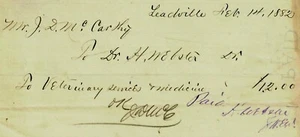 Leadville Feb 14, 1882
Mr. J. D. McCarthy
To Dr. H. Webster Dr.
To Veterinary services & medicine $12.00
OK
Paid
H. Webster